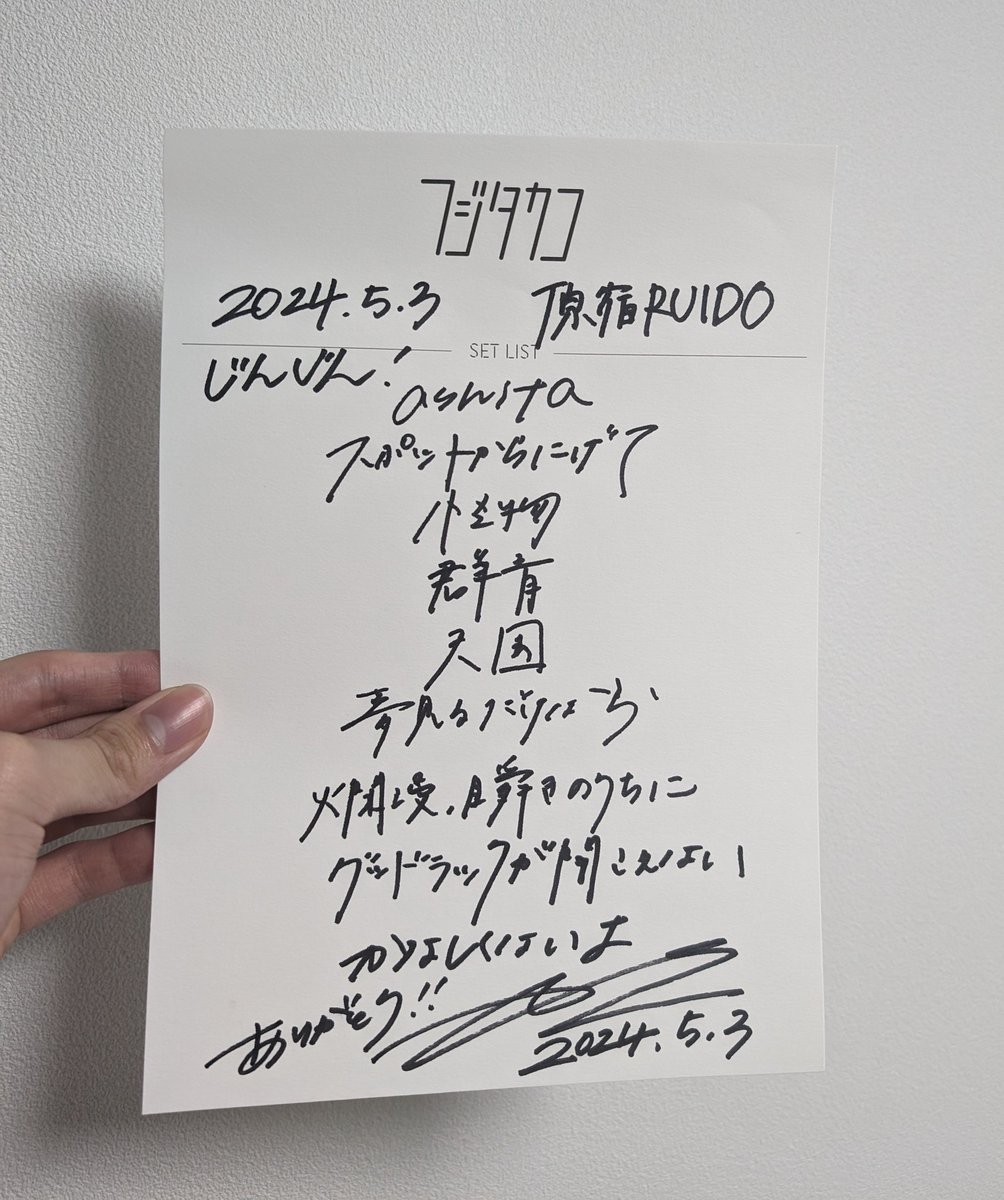 フジタカコ
2024.5.3 原宿RUIDO
SET LIST
じんじん!
ashita
スポットからにげて
小怪物
群青
天国
夢見るだけなら
爛漫、瞬きのうちに
グッドラックが聞こえない
かなしくないよ
ありがとう!!
2024.5.3